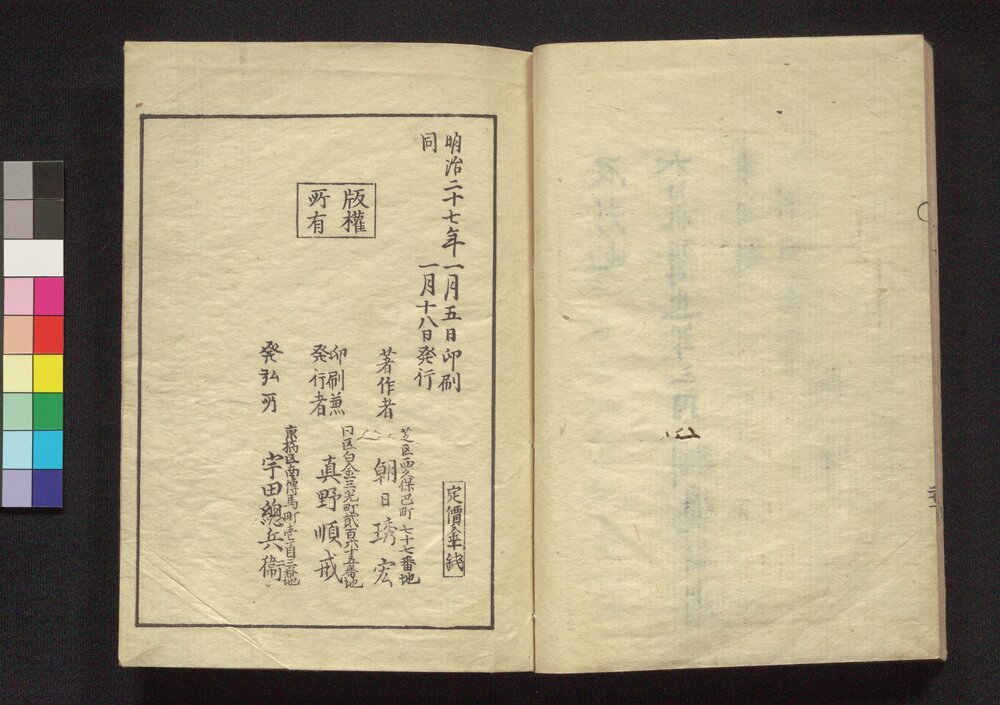 明治二十七年一月五日印刷
同 一月十八日発行
版權
所有
定價金 錢
著作者
芝区西久保巴町七十七番地
朝日琇宏
印刷兼
発行者
同区白金三光町貳百六十五番地
真野順戒
発弘所
京橋区南傳馬町壱丁目三番地
宇田總兵衞